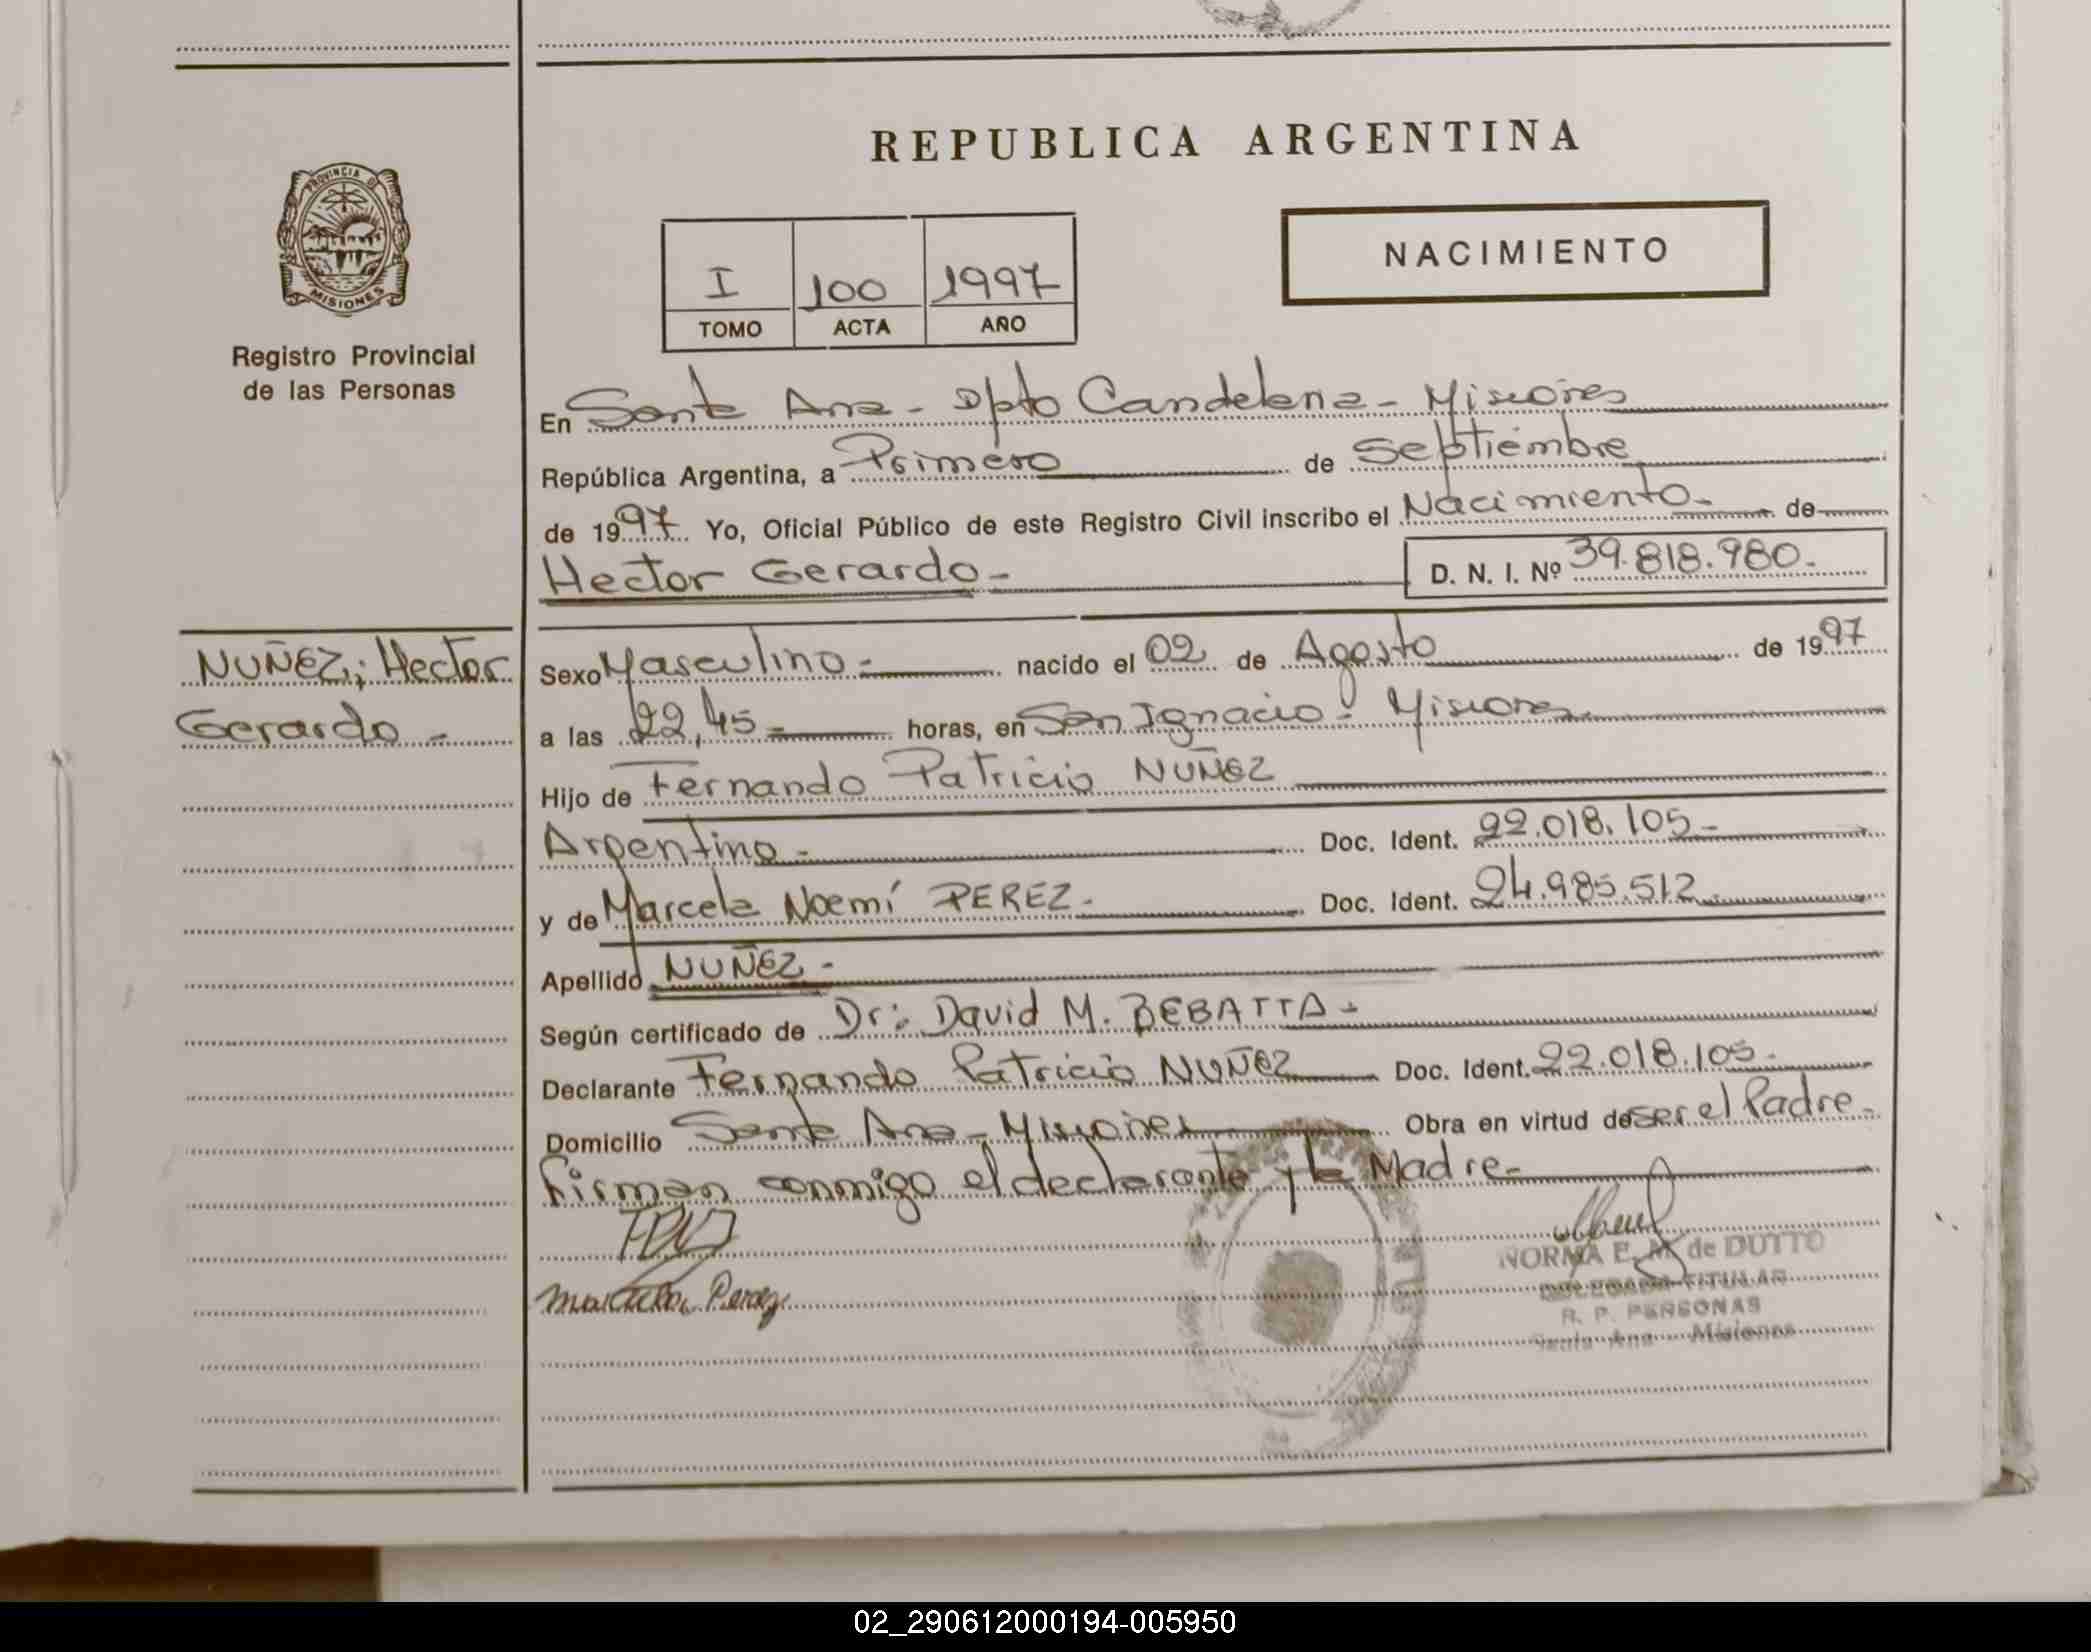 REPUBLICA ARGENTINA
PROVINCIA DE
MISIONES
Registro Provincial
de las Personas
NACIMIENTO
I 100 1997
TOMO ACTA AÑO
En Santa Ana - Dpto Candelaria - Misiones
República Argentina, a Primero de Septiembre
de 1997 Yo, Oficial Público de este Registro Civil inscribo el Nacimiento - de
Hector Gerardo - D. N. I. Nº 39.818.980.-
NUÑEZ; Hector
Gerardo -
Sexo Masculino - nacido el 02 de Agosto de 1997
a las 22,45 - horas, en San Ignacio - Misiones
Hijo de Fernando Patricio NUÑEZ
Argentino - Doc. Ident. 22.018.105 -
y de Marcela Noemí PEREZ - Doc. Ident. 24.985.512
Apellido NUÑEZ -
Según certificado de Dr: David M. BEBATTA -
Declarante Fernando Patricio NUÑEZ Doc. Ident. 22.018.105 -
Domicilio Santa Ana - Misiones Obra en virtud de ser el Padre -
firman conmigo el declarante y la Madre -
FPN
Marcela Perez
NORMA E. M. de DUTTO
DELEGADA TITULAR
R. P. PERSONAS
Santa Ana - Misiones
02_290612000194-005950